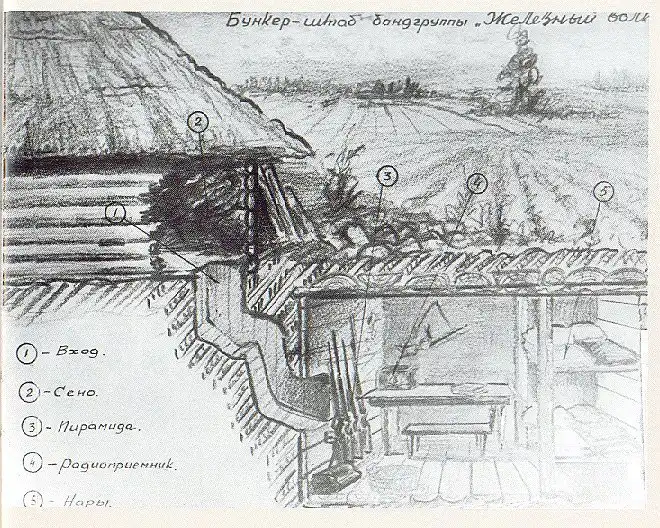 Бункер-штаб бандгруппы „Железный
2
3
4
5
1
1 - Вход.
2 - Сено.
3 - Пирамида.
4 - Радиоприемник.
5 - Нары.